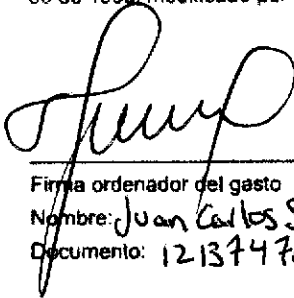 Firma ordenador del gasto
Nombre: Juan Carlos S
Documento: 1213747